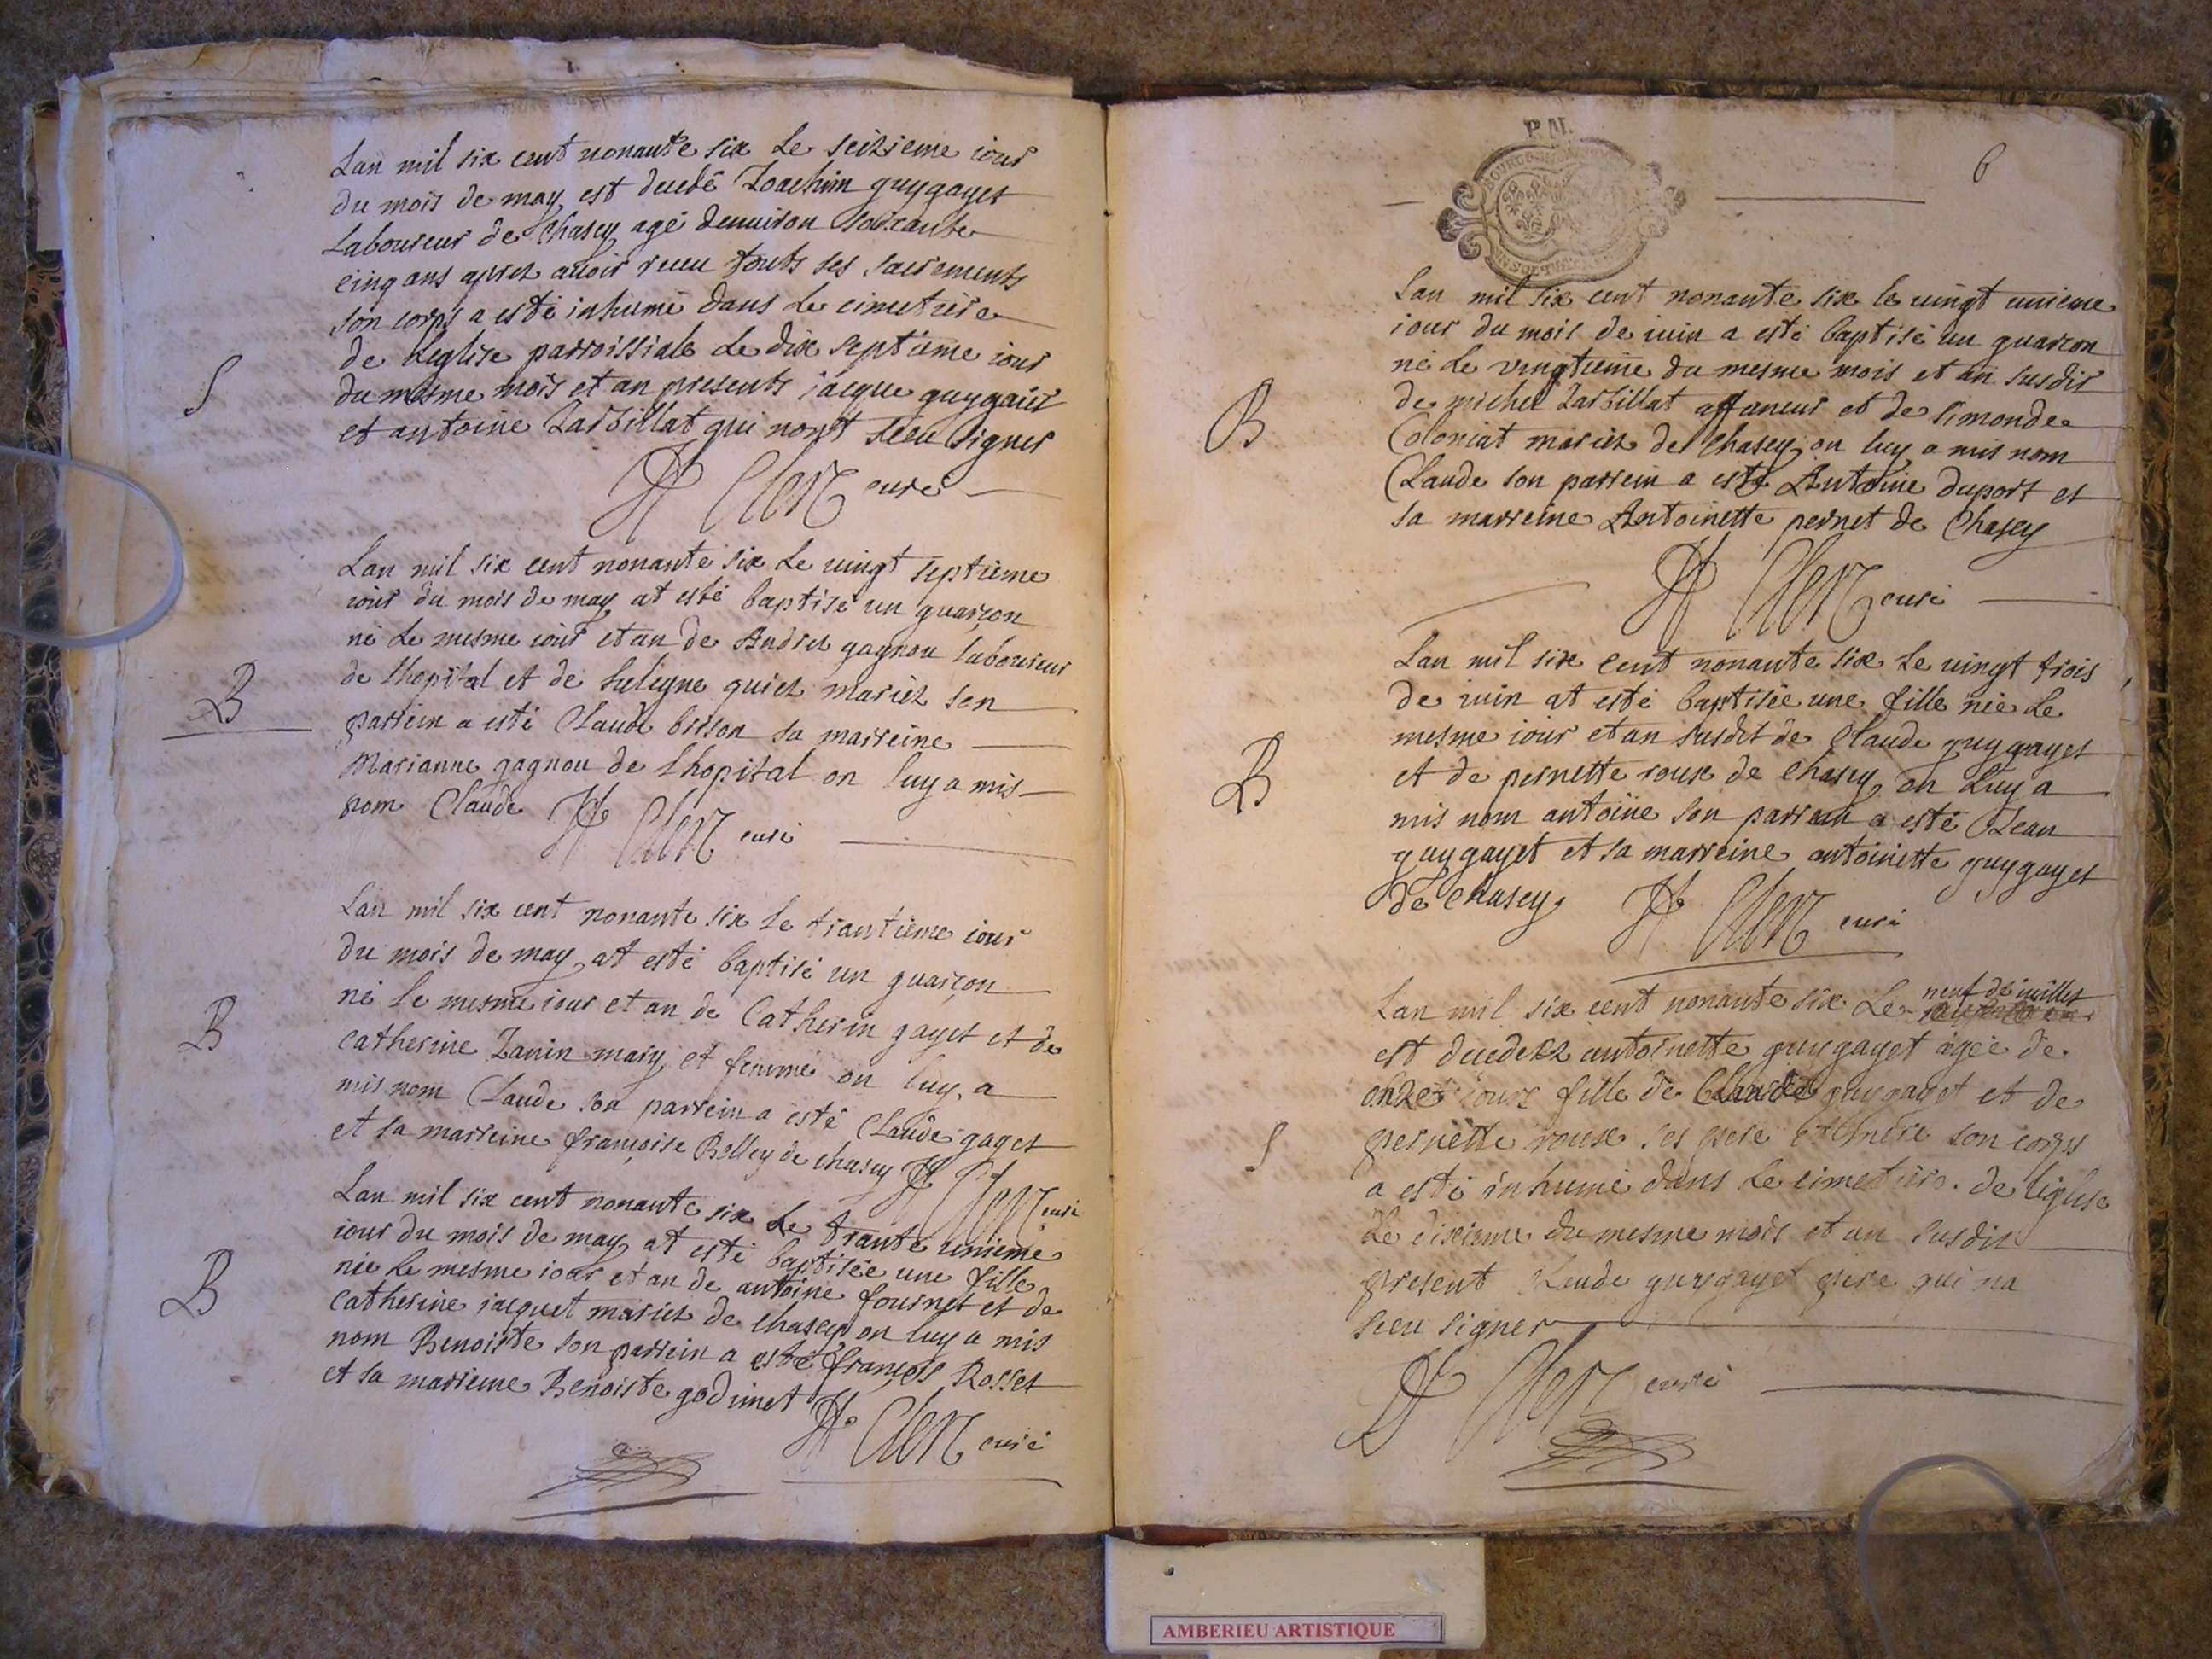 Lan mil six cent nonante six Le seizieme iour
du mois de may est decedé Joachim guygayet
Laboureur de Chasey agé denuiron soixante
cinq ans aprez auoir receu touts ses sacrements
son corps a esté inhumé dans Le cimetiere
de Leglise parroissiale Le dix septieme iour
du mesme mois et an presents iacque guygaiet
et antoine qui nont sceu signer
S
Clerc curé
Lan mil six cent nonante six Le uingt septieme
iour du mois de may at esté baptisé un guarçon
né Le mesme iour et an de Andrez gagnou laboureur
de Lhopital et de mariez son
B
parrein a esté Claude brison sa marreine
Marianne gagnou de Lhopital on luy a mis
nom Claude Clerc curé
Lan mil six cent nonante six Le trantieme iour
du mois de may at esté baptisé un guarçon
né Le mesme iour et an de Catherin gayet et de
B
catherine Janin mary et femme on luy a
mis nom Claude son parrein a esté Claude gayet
et sa marreine françoise Belley de chasey Clerc curé
Lan mil six cent nonante six Le trante unieme
iour du mois de may at esté baptisée une fille
née Le mesme iour et an de antoine fournet et de
B
catherine iacquet mariez de Chasey on luy a mis
nom Benoiste son parrein a esté françois Rosset
et sa marreine Benoiste godimet Clerc curé
P.M.
6
Lan mil six cent nonante six le uingt unieme
iour du mois de iuin a esté baptisé un guarcon
né Le vingtieme du mesme mois et an susdit
de michel affaneur et de simonde
B
Coloniat mariez de Chasey on luy a mis nom
Claude son parrein a esté Antoine duport et
sa marreine Antoinette pernet de Chasey
Clerc curé
Lan mil six cent nonante six Le uingt trois
de iuin at esté baptisée une fille née Le
mesme iour et an susdit de Claude guygayet
B
et de pernette roux de Chasey on Luy a
mis nom antoine son parrein a esté Jean
guygayet et sa marreine antoinette guygayet
de Chasey Clerc curé
Lan mil six cent nonante six Le neuf de iuillet
est decedez antoinette guygayet agée de
onze iours fille de Claude guygayet et de
S
pernette roux ses pere et mere son corps
a esté inhumé dans Le cimetiere de leglise
Le dixieme du mesme mois et an susdit
present Claude guygayet pere qui na
sceu signer
Clerc curé
AMBERIEU ARTISTIQUE